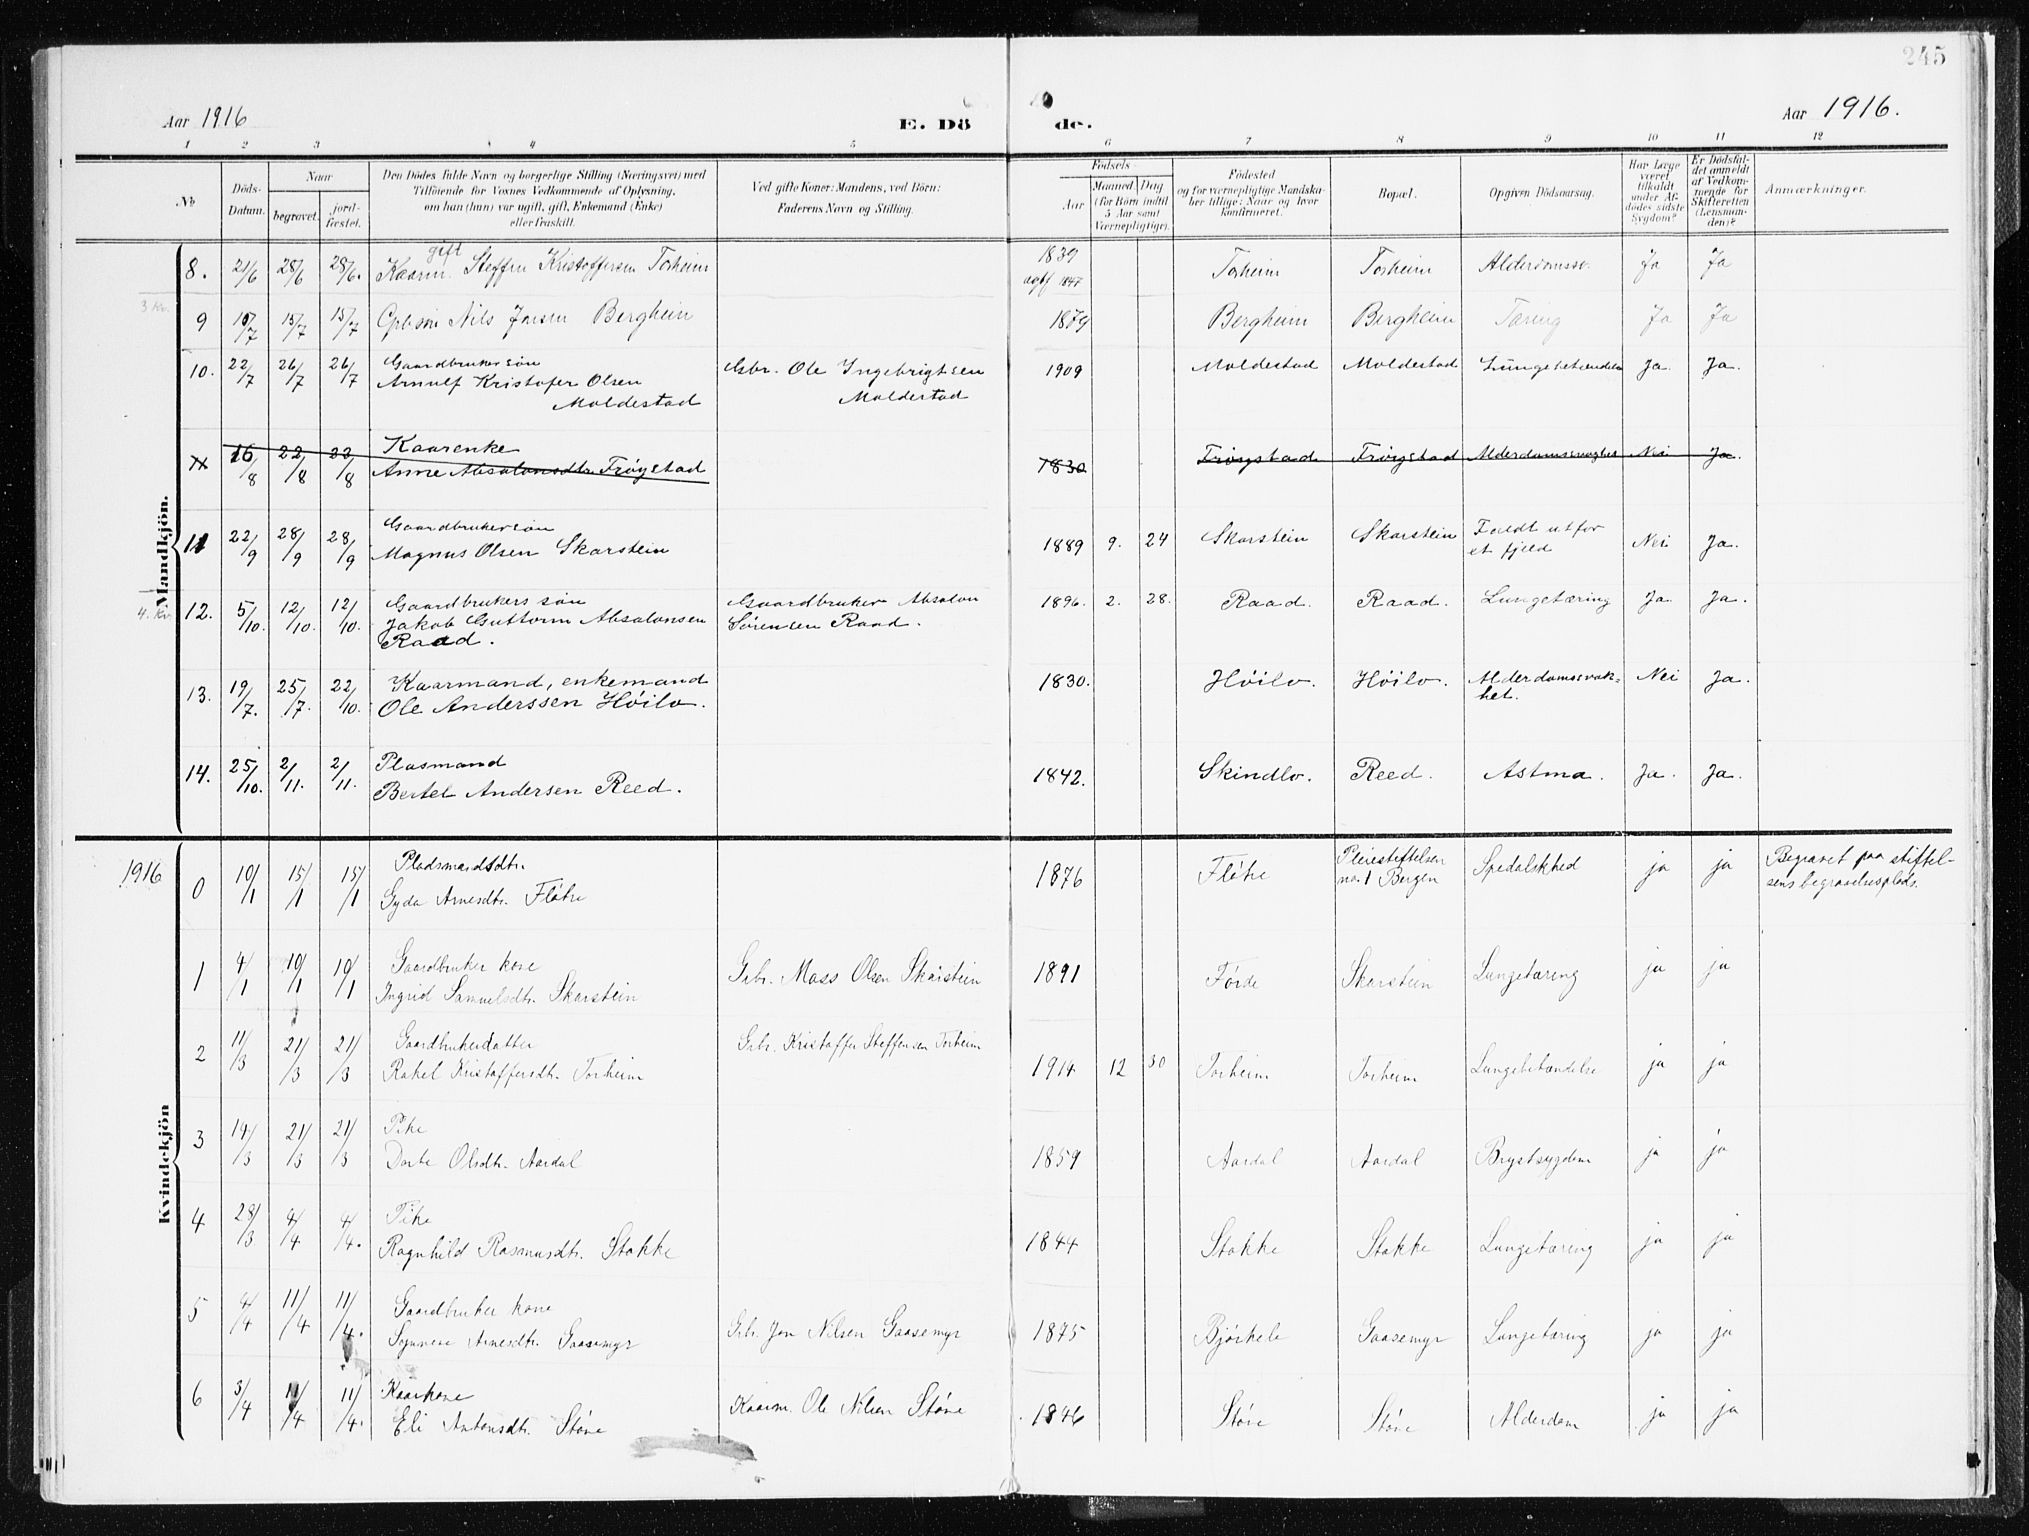 245
Aar 1916
E. Dö
de.
Aar 1916.
1 2 3 4 5 6 7 8 9 10 11 12
No
Döds-
Datum.
Naar
begravet.
jord-
fæstet.
Den Dödes fulde Navn og borgerlige Stilling (Næringsvei) med
Tilföiende for Voxnes Vedkommende af Oplysning,
om han (hun) var ugift, gift, Enkemand (Enke)
eller fraskilt.
Ved gifte Koner: Mandens, ved Börn:
Faderens Navn og Stilling.
Födsels
Aar
Maaned Dag
(for Börn indtil
5 Aar samt
Værnepligtige).
Födested
og for værnepligtige Mandska-
ber tillige: Naar og hvor
konfirmeret.
Bopæl.
Opgiven Dödsaarsag.
Har Læge
været
tilkaldt
under Af-
dödes sidste
Sygdom?
Er Dödsfal-
det anmeldt
af Vedkom-
mende for
Skifteretten
(Lensman-
den)?
Anmærkninger.
Mandkjön.
gift
8. 21/6 28/6 28/6. Kaarm. Steffen Kristoffersen Torheim 1839 Torheim Torheim Alderdomssv. Ja Ja
1847
3 kv.
9 10/7 15/7 15/7 Nils Jonsen Bergheim 1879 Bergheim Bergheim Tæring Ja Ja
10. 22/7 26/7 26/7 Gaardbrukersøn
Arnulf Kristofer Olsen
Moldestad
Gbr. Ole Ingebrigtsen
Moldestad
1909 Moldestad Moldestad Lungebetændelse Ja. Ja.
11 16/8 22/8 22/8 Kaarenke
Anne Absalonsdtr. Frøystad 1830 Frøystad Frøystad Alderdomssvaghet Nei Ja.
11 22/9 28/9 28/9 Gaardbrukersøn
Magnus Olsen Skarstein 1889 9. 24 Skarstein Skarstein Faldt utfor
et fjeld Nei Ja.
4. kv.
12. 5/10. 12/10. 12/10. Gaardbrukers søn
Jakob Guttorm Absalonsen
Raad.
Gaardbruker Absalon
Sørensen Raad.
1896. 2. 28. Raad. Raad. Lungetæring Ja. Ja.
13. 19/7. 25/7. 22/10. Kaarmand, enkemand
Ole Anderssen Høilo. 1830. Høilo. Høilo. Alderdomssvak-
het. Nei Ja.
14. 25/10. 2/11. 2/11. Plasmand
Bertel Andersen Reed. 1842. Skindlo. Reed. Astma. Ja. Ja.
Kvindekjön
1916
0 10/1 15/1 15/1 Pladsmandsdtr.
Gyda Arnesdtr. Fløtre 1876 Fløtre Pleiestiftelsen
no. 1 Bergen Spedalskhed ja ja Begravet paa stiftel-
sens begravelsesplads.
1 4/1 10/1 10/1 Gaardbruker kone
Ingrid Samuelsdtr. Skarstein Grbr. Mass Olsen Skarstein 1891 Førde Skarstein Lungetæring ja ja
2 11/3 21/3 21/3 Gaardbrukerdatter
Rakel Kristoffersdtr. Torheim Grbr. Kristoffer Steffensen Torheim 1914 12 30 Torheim Torheim Lungebetændelse ja ja
3 14/3 21/3 21/3 Pike
Dorte Olsdtr. Aardal 1859 Aardal Aardal Brystsygdom ja ja
4 28/3 4/4 4/4. Pike
Ragnhild Rasmusdtr. Stokke 1844 Stokke Stokke Lungetæring ja ja
5 4/4 11/4 11/4. Gaardbruker kone
Synneve Arnesdtr. Gaasemyr Grbr. Jon Nilsen Gaasemyr 1875 Bjørkelo Gaasemyr Lungetæring ja ja
6 3/4 11/4 11/4. Kaarkone
Eli Antonsdtr. Støve Kaarm. Ole Nilsen Støve 1846 Støve Støve Alderdom ja ja